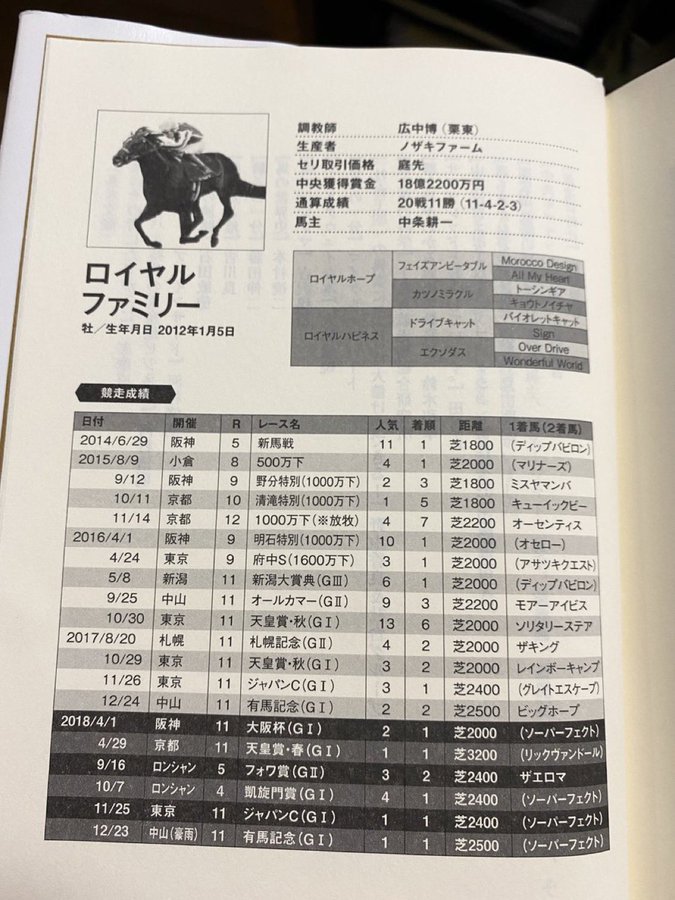 調教師 広中博（栗東）
生産者 ノザキファーム
セリ取引価格 庭先
中央獲得賞金 18億2200万円
通算成績 20戦11勝（11-4-2-3）
馬主 中条耕一
ロイヤル
ファミリー
牡／生年月日 2012年1月5日
ロイヤルホープ フェイズアンビータブル Morocco Design
All My Heart
カツノミラクル トーシンギア
キョウトノイチャ
ロイヤルハピネス ドライブキャット バイオレットキャット
Sign
エクソダス Over Drive
Wonderful World
競走成績
日付 開催 R レース名 人気 着順 距離 1着馬（2着馬）
2014/6/29 阪神 5 新馬戦 11 1 芝1800 （ディップバビロン）
2015/8/9 小倉 8 500万下 4 1 芝2000 （マリナーズ）
9/12 阪神 9 野分特別（1000万下） 2 3 芝1800 ミスヤマンバ
10/11 京都 10 清滝特別（1000万下） 1 5 芝1800 キューイックビー
11/14 京都 12 1000万下（※放牧） 4 7 芝2200 オーセンティス
2016/4/1 阪神 9 明石特別（1000万下） 10 1 芝2000 （オセロー）
4/24 東京 9 府中S（1600万下） 3 1 芝2000 （アサツキクエスト）
5/8 新潟 11 新潟大賞典（GⅢ） 6 1 芝2000 （ディップバビロン）
9/25 中山 11 オールカマー（GⅡ） 9 3 芝2200 モアーアイビス
10/30 東京 11 天皇賞・秋（GⅠ） 13 6 芝2000 ソリタリーステア
2017/8/20 札幌 11 札幌記念（GⅡ） 4 2 芝2000 ザキング
10/29 東京 11 天皇賞・秋（GⅠ） 3 2 芝2000 レインボーキャンプ
11/26 東京 11 ジャパンC（GⅠ） 3 1 芝2400 （グレイトエスケープ）
12/24 中山 11 有馬記念（GⅠ） 2 2 芝2500 ビッグホープ
2018/4/1 阪神 11 大阪杯（GⅠ） 2 1 芝2000 （ソーパーフェクト）
4/29 京都 11 天皇賞・春（GⅠ） 1 1 芝3200 （リックヴァンドール）
9/16 ロンシャン 5 フォワ賞（GⅡ） 3 2 芝2400 ザエロマ
10/7 ロンシャン 4 凱旋門賞（GⅠ） 4 1 芝2400 （ソーパーフェクト）
11/25 東京 11 ジャパンC（GⅠ） 1 1 芝2400 （ソーパーフェクト）
12/23 中山（豪雨） 11 有馬記念（GⅠ） 1 1 芝2500 （ソーパーフェクト）